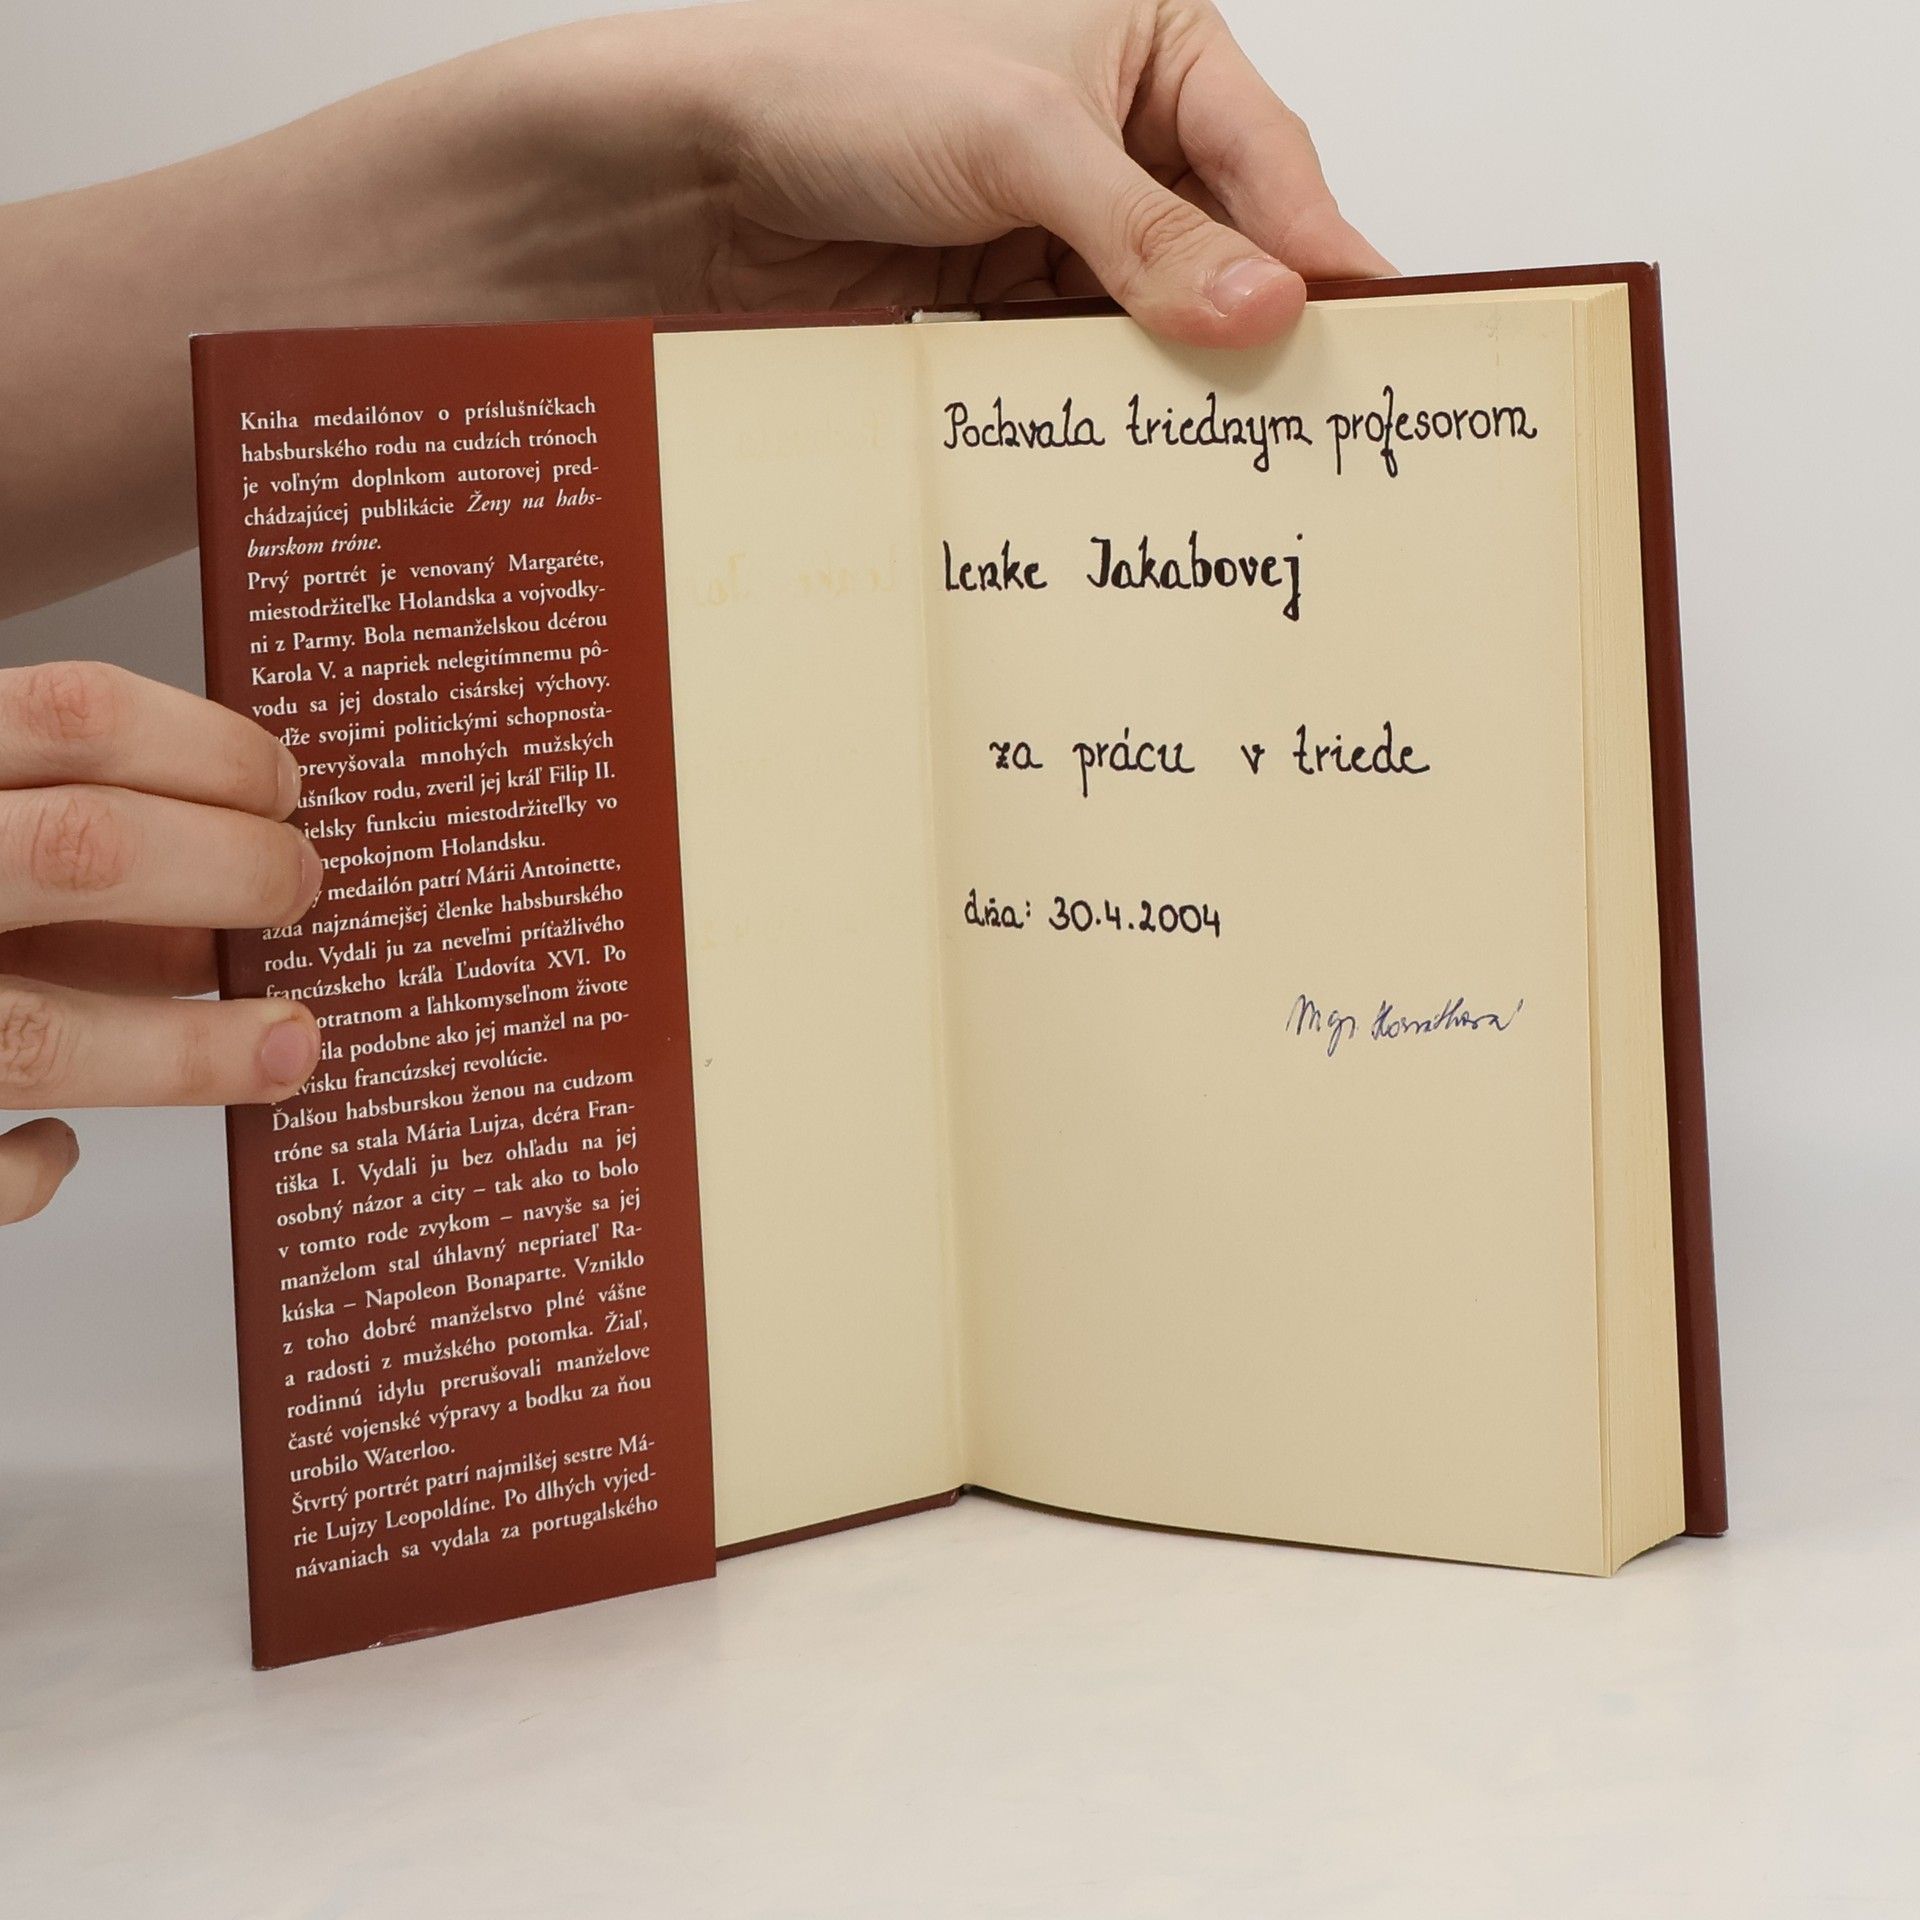 Kniha medailónov o príslušníčkach
habsburského rodu na cudzích trónoch
je voľným doplnkom autorovej pred-
chádzajúcej publikácie Ženy na habs-
burskom tróne.
Prvý portrét je venovaný Margaréte,
miestodržiteľke Holandska a vojvodky-
ni z Parmy. Bola nemanželskou dcérou
Karola V. a napriek nelegitímnemu pô-
vodu sa jej dostalo cisárskej výchovy.
dže svojimi politickými schopnosťa-
prevyšovala mnohých mužských
ušníkov rodu, zveril jej kráľ Filip II.
ielsky funkciu miestodržiteľky vo
nepokojnom Holandsku.
ý medailón patrí Márii Antoinette,
azda najznámejšej členke habsburského
rodu. Vydali ju za neveľmi príťažlivého
francúzskeho kráľa Ľudovíta XVI. Po
otratnom a ľahkomyseľnom živote
ila podobne ako jej manžel na po-
visku francúzskej revolúcie.
Ďalšou habsburskou ženou na cudzom
tróne sa stala Mária Lujza, dcéra Fran-
tiška I. Vydali ju bez ohľadu na jej
osobný názor a city – tak ako to bolo
v tomto rode zvykom – navyše sa jej
manželom stal úhlavný nepriateľ Ra-
kúska – Napoleon Bonaparte. Vzniklo
z toho dobré manželstvo plné vášne
a radosti z mužského potomka. Žiaľ,
rodinnú idylu prerušovali manželove
časté vojenské výpravy a bodku za ňou
urobilo Waterloo.
Štvrtý portrét patrí najmilšej sestre Má-
rie Lujzy Leopoldíne. Po dlhých vyjed-
návaniach sa vydala za portugalského
Pochvala triednym profesorom
Lenke Jakabovej
za prácu v triede
dňa: 30.4.2004
Mgr. Horváthová